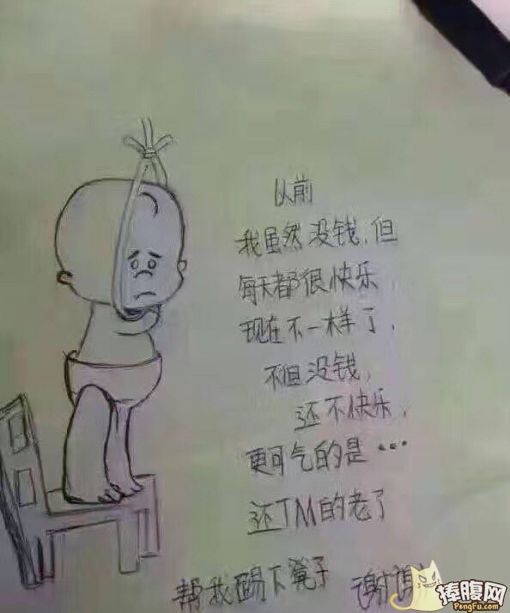 以前
我虽然没钱,但
每天都很快乐,
现在不一样了,
不但没钱,
还不快乐,
更可气的是…
还TM的老了
帮我踢下凳子 谢谢
捧腹网
PengFu.com